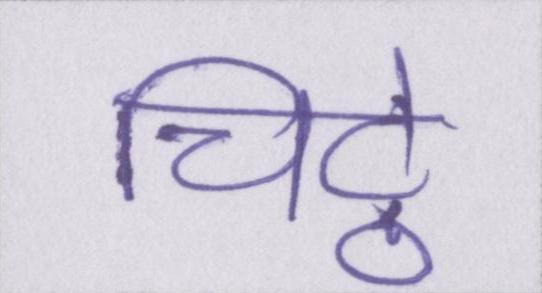 चिट्ठे